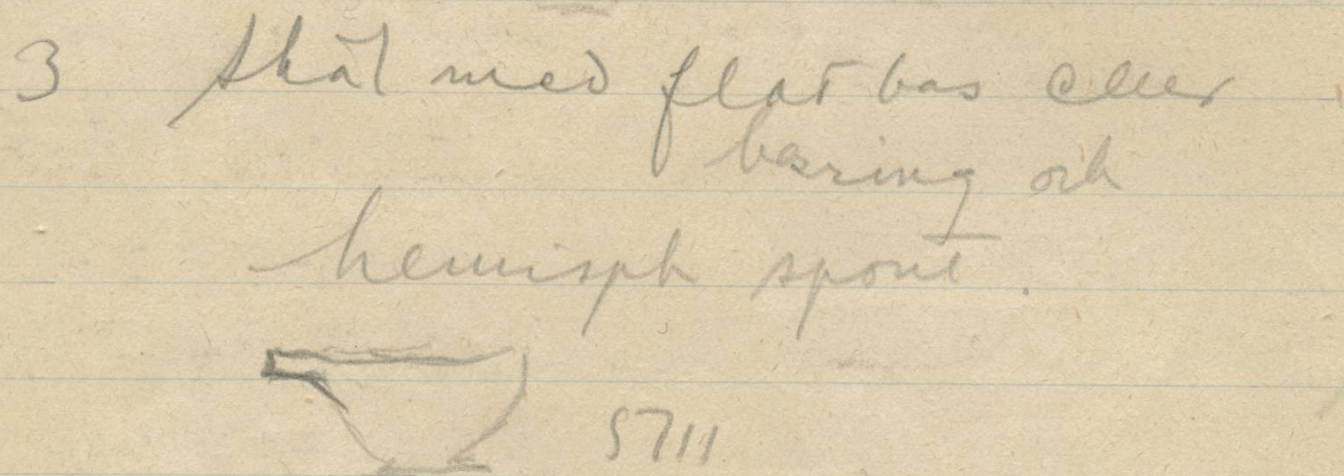 3 skål med flat bas eller
basring och
hemisph spout.
5711